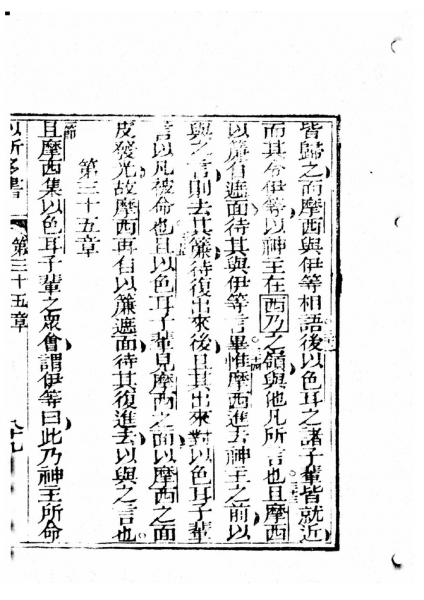 皆歸之而摩西與伊等相語後以色耳之諸子輩皆就近
而其令伊等以神主在西乃之嶺與他凡所言也且摩西
以簾自遮面待其與伊等言畢惟摩西進去神主之前以
與之言則去其簾待復出來後且其出來對以色耳子輩
言以凡被命也且以色耳子輩見摩西之面以摩西之面
皮發光故摩西再自以簾遮面待其復進去以與之言也
第三十五章
節
且摩西集以色耳子輩之眾會謂伊等曰此乃神主所命
第三十五章
八十九